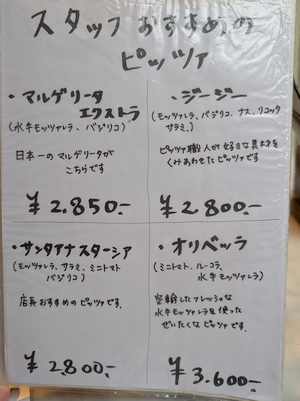 スタッフおすすめの
ピッツァ
・マルゲリータ
エクストラ
(水牛モッツァレラ、バジリコ)
日本一のマルゲリータが
こちらです
¥2.850.-
・ジージー
(モッツァレラ、バジリコ、ナス、リコッタ
サラミ、)
ピッツァ職人が好きな具材を
くみあわせたピッツァです
¥2.800.-
・サンタアナスターシア
(モッツァレラ、サラミ、ミニトマト
バジリコ)
店長おすすめのピッツァです。
¥2.800.-
・オリベッラ
(ミニトマト、ルーコラ、
水牛モッツァレラ)
空輸したフレッシュな
水牛モッツァレラを使った
ぜいたくなピッツァです。
¥3.600.-